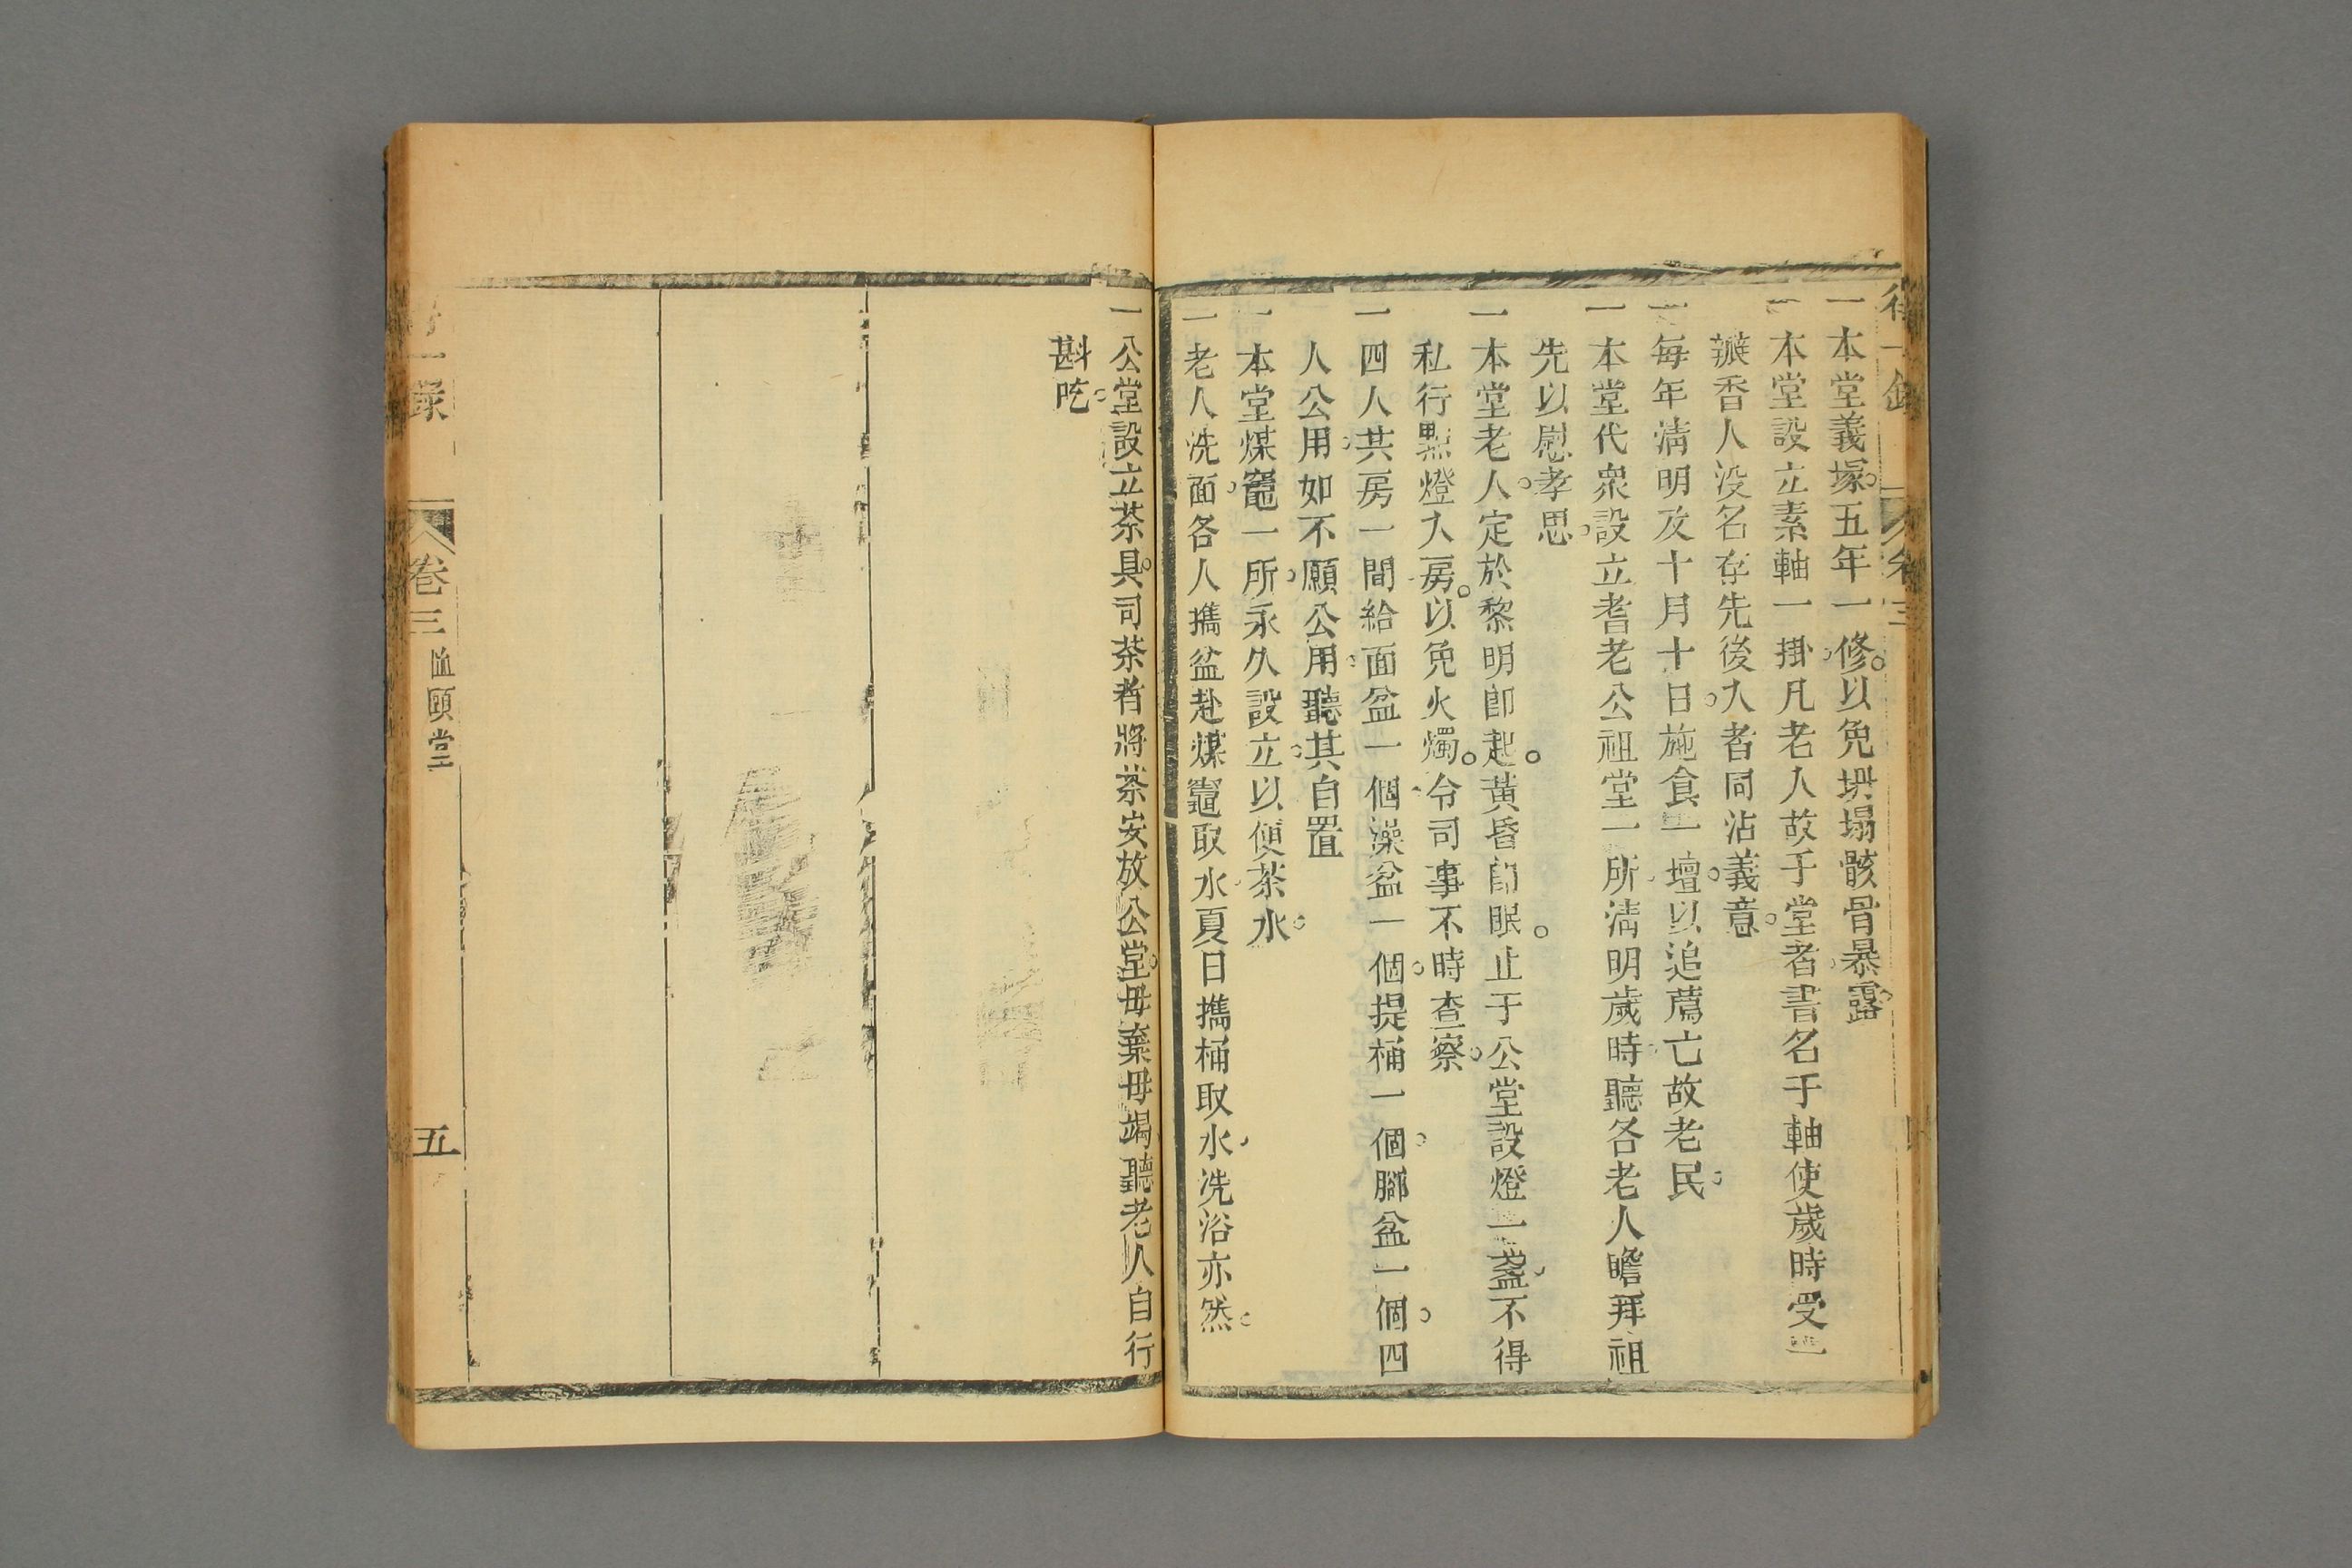 得一錄
卷三
一本堂義塚五年一修以免坍塌骸骨暴露
一本堂設立素軸一掛凡老人故于堂者書名于軸使歲時受
瓣香人没名存先後人者同沾義意
一每年淸明及十月十日施食一壇以追薦亡故老民
一本堂代衆設立耆老公祖堂一所淸明歲時聽各老人瞻拜祖
先以慰孝思
一本堂老人定於黎明卽起黃昏卽眠止于公堂設燈一盞不得
私行㸃燈入房以免火燭令司事不時查察
一四人共房一間給面盆一個澡盆一個提桶一個腳盆一個四
人公用如不願公用聽其自置
一本堂煤竈一所永久設立以便茶水
一老人洗面各人攜盆赴煤竈取水夏日攜桶取水洗浴亦然
一公堂設立茶具司茶者將茶安放公堂毋棄毋竭聽老人自行
斟吃
得一錄
卷三
恤頤堂
五